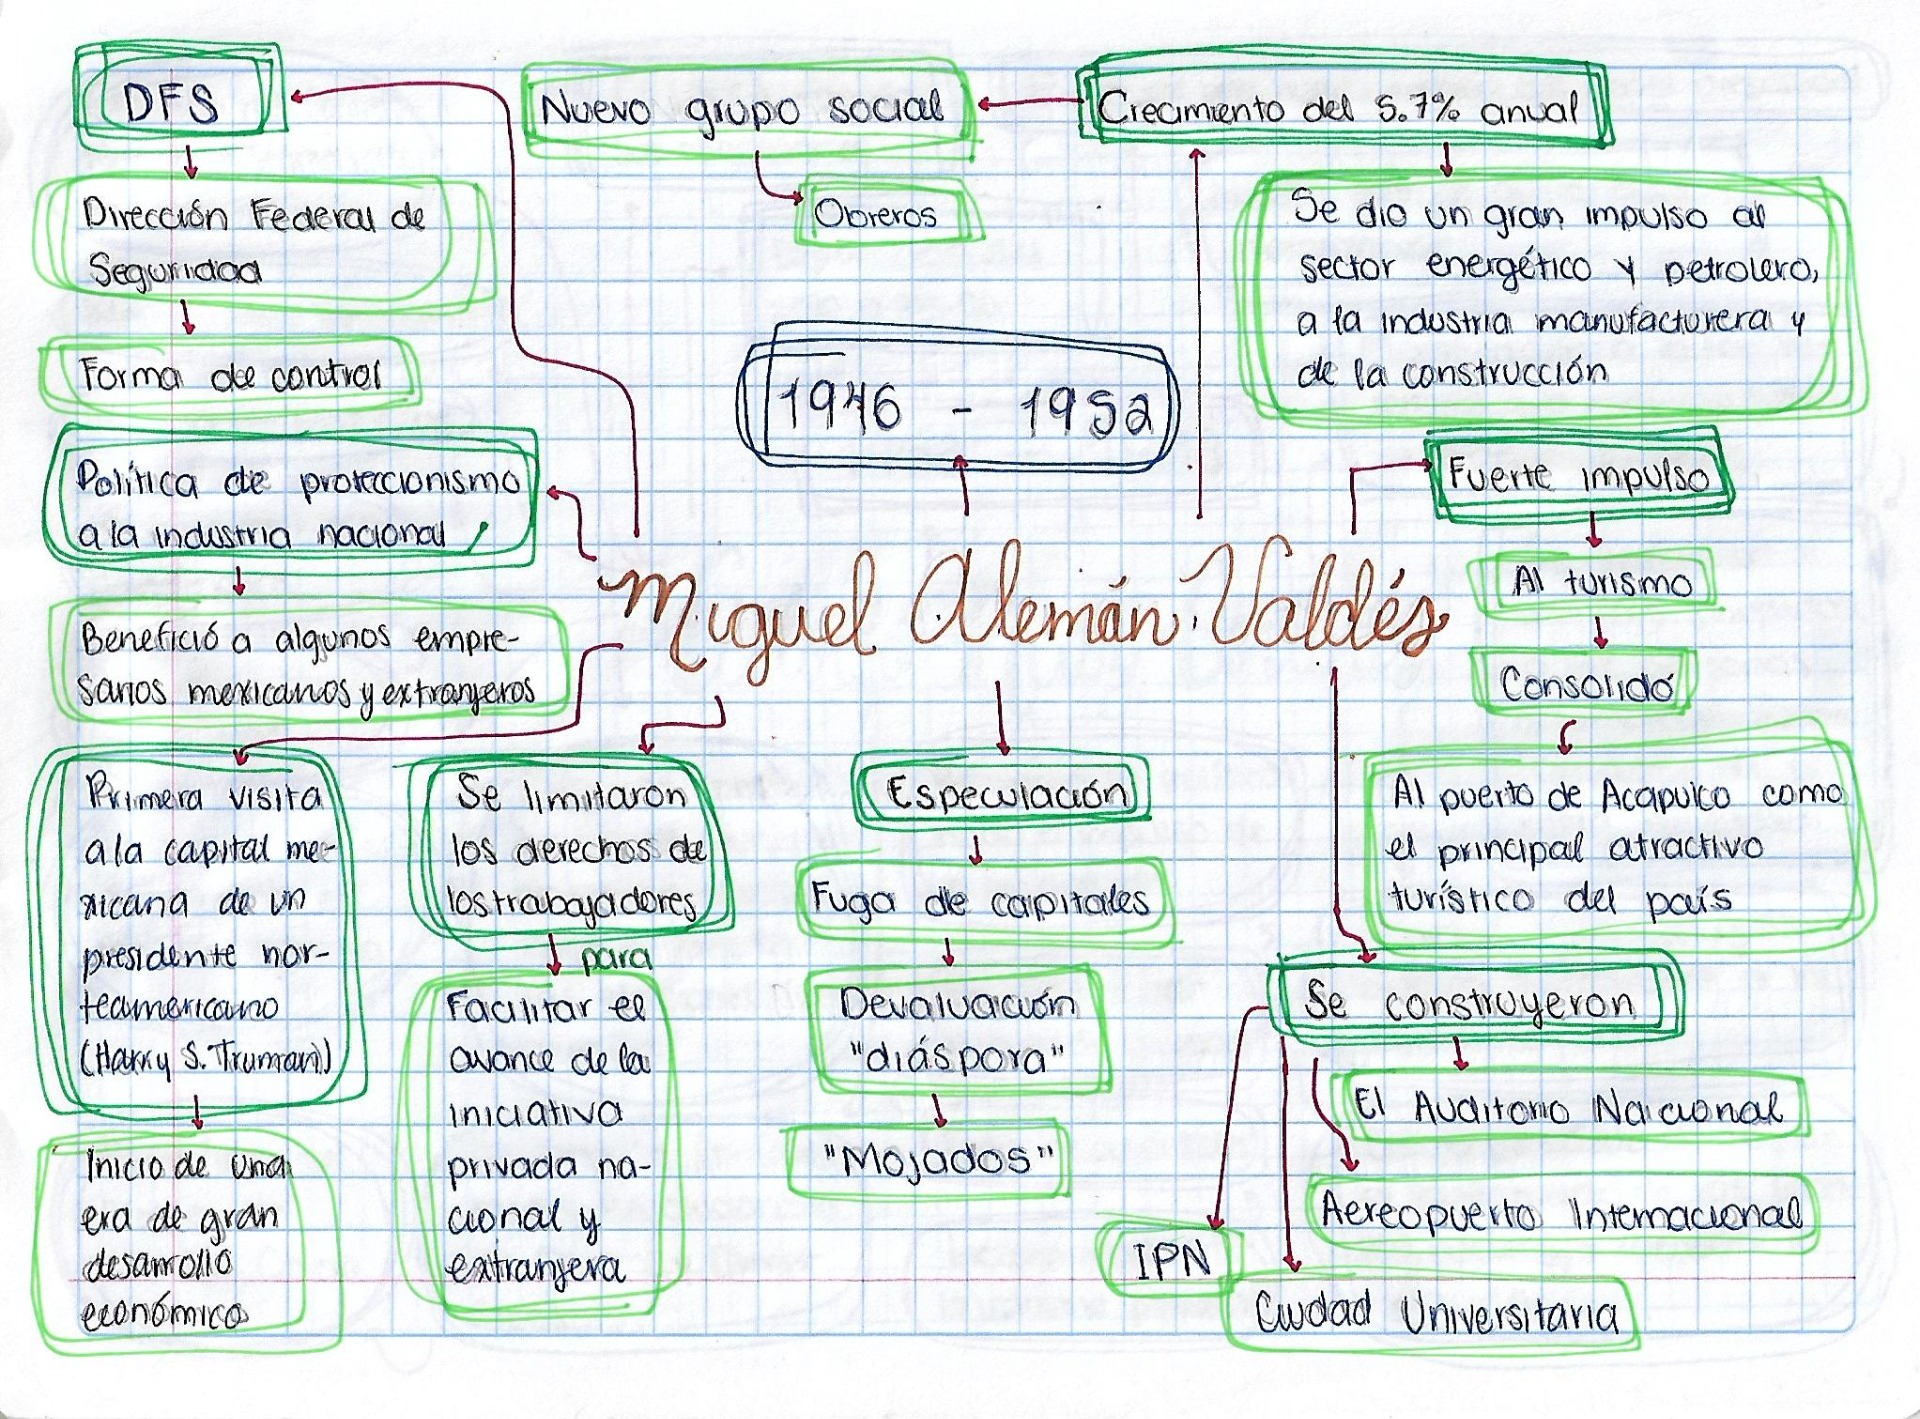 DFS
Dirección Federal de
Seguridad
Forma de control
Política de proteccionismo
a la industria nacional
Benefició a algunos empre-
sarios mexicanos y extranjeros
Primera visita
a la capital me-
xicana de un
presidente nor-
teamericano
(Harry S. Truman)
Inicio de una
era de gran
desarrollo
económico
Nuevo grupo social
Obreros
Crecimiento del 5.7% anual
Se dio un gran impulso al
sector energético y petrolero,
a la industria manufacturera y
de la construcción
1946 - 1952
Miguel Alemán Valdés
Fuerte impulso
Al turismo
Consolidó
Al puerto de Acapulco como
el principal atractivo
turístico del país
Se limitaron
los derechos de
los trabajadores
para
Facilitar el
avance de la
iniciativa
privada na-
cional y
extranjera
Especulación
Fuga de capitales
Devaluación
"diáspora"
"Mojados"
Se construyeron
El Auditorio Nacional
Aereopuerto Internacional
IPN
Ciudad Universitaria